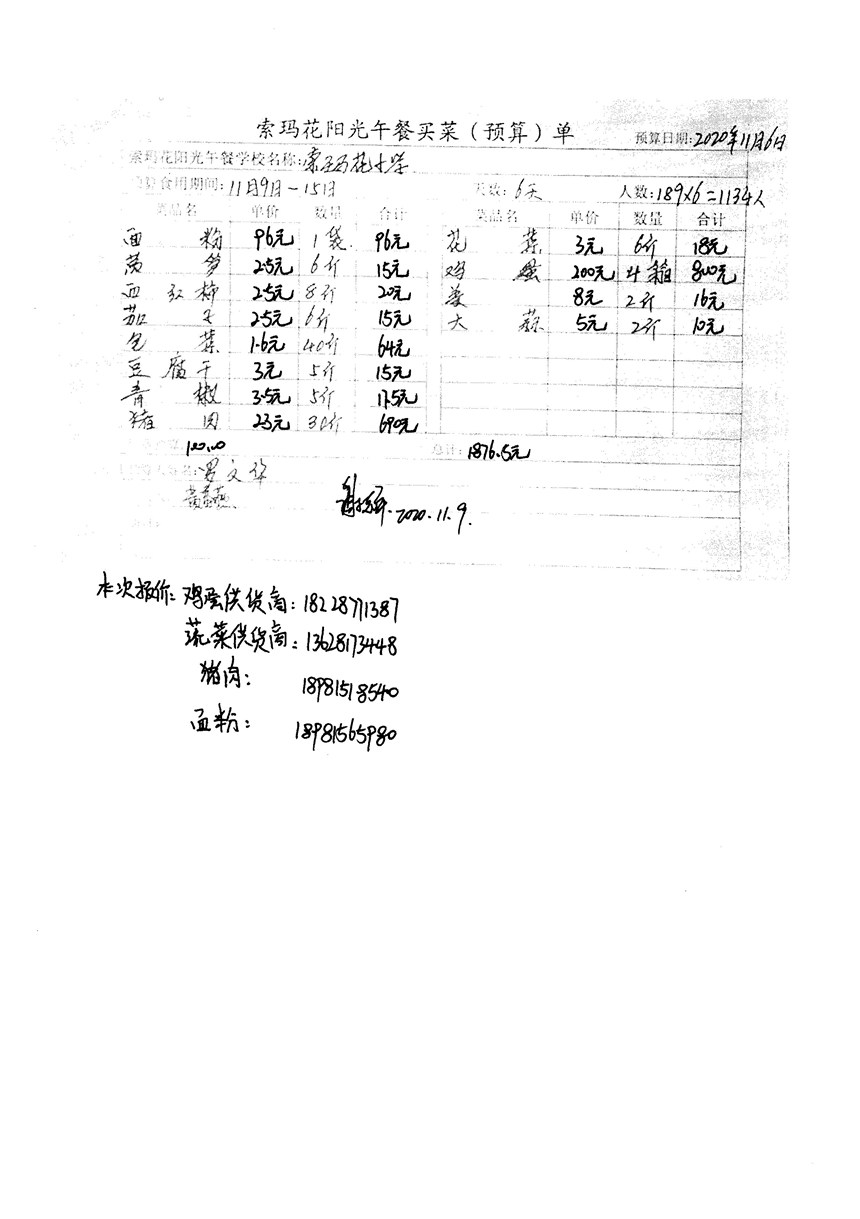 索玛花阳光午餐买菜（预算）单
预算日期:2020年11月6日
索玛花阳光午餐学校名称:索玛花小学
预算食用期间:11月9日-15日 天数:6天 人数:189×6=1134人
菜品名 单价 数量 合计 菜品名 单价 数量 合计
面粉 96元 1袋 96元 花菜 3元 6斤 18元
莴笋 2.5元 6斤 15元 鸡蛋 200元 4箱 800元
西红柿 2.5元 8斤 20元 姜 8元 2斤 16元
茄子 2.5元 6斤 15元 大蒜 5元 2斤 10元
包菜 1.6元 40斤 64元
豆腐干 3元 5斤 15元
青椒 3.5元 5斤 17.5元
猪肉 23元 30斤 690元
100.00 总计:1876.5元
罗文华
2020.11.9.
本次报价:鸡蛋供货商:18228771387
蔬菜供货商:13628173448
猪肉: 18981518540
面粉: 18981565980